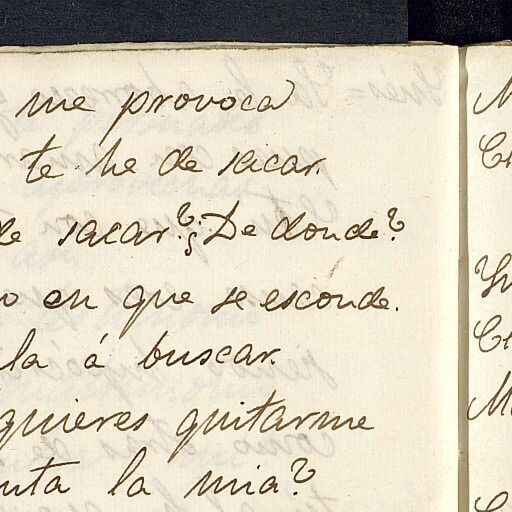 me provoca
te he de sacar.
de sacar? ¿De donde?
o en que se esconde.
la á buscar.
quieres quitarme
la mia?